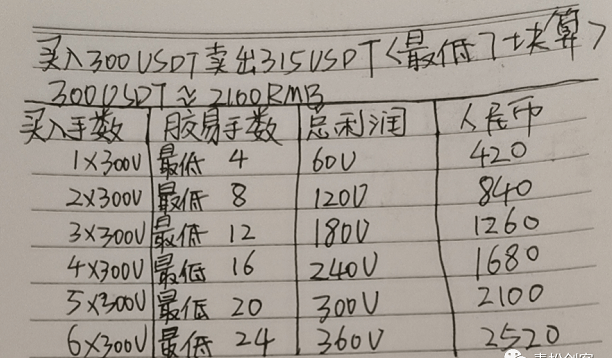 买入300USDT卖出315USDT<最低7块算>
300USDT≈2100RMB
买入手数 月交易手数 总利润 人民币
1×300U 最低 4 60U 420
2×300U 最低 8 120U 840
3×300U 最低 12 180U 1260
4×300U 最低 16 240U 1680
5×300U 最低 20 300U 2100
6×300U 最低 24 360U 2520